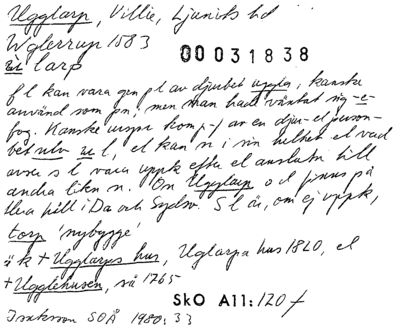 Ugglarp, Villie, Ljunits hd
Uglerrup 1583
00031838
u: larp
f l kan vara gen pl av djurbet uggla, kanske
använd som pn, men man hade väntat sig -e-
fog. Kanske urspr komp-f av en djur- el person-
bet ulv el, kan n i sin helhet el vad
avser s l vara uppk efter el ansluta till
andra likn n. On Ugglarp o d finns på
flera håll i Da och Sydsv. S l är, om ej uppk,
torp 'nybygge'
äk + Ugglarps hus, Uglarpa hus 1820, el
+ Ugglehusen, så 1765
SkO A11:120 f
Isaksson SOÅ 1980:33